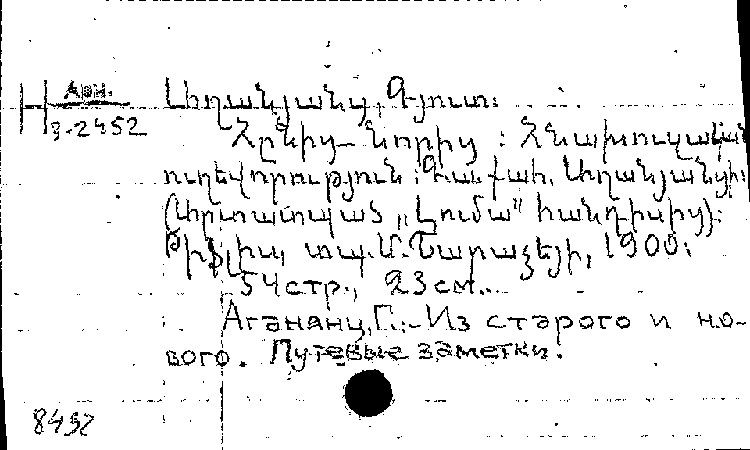 Арм.
3-2452
Աղանյանց, Գյուտ.
Հընից-Նորից : Հնախուզական
ուղեվորություն : քահ. Աղանյանցի:
(Արտատպած „Լումա" հանդիսից):
Թիֆլիս, տպ. Մ. Շարաձեյի, 1900:
54стр., 23см.
Агананц, Г.:-Из старого и но-
вого. Путевые заметки.
8492